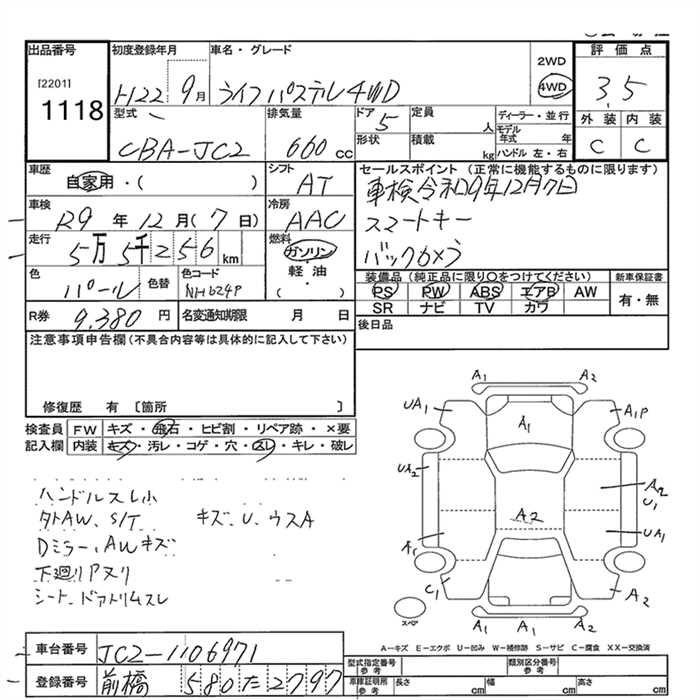 出品番号
[2201]
1118
初度登録年月
H22 9月
車名・グレード
ライフ パステル 4WD
2WD
4WD
評価点
3.5
外装 内装
C C
型式
CBA-JC2
排気量
660 cc
ドア
5
定員
人
形状
積載
kg
ディーラー・並行
モデル年式 年
ハンドル 左・右
車歴
自家用・( )
シフト
AT
セールスポイント (正常に機能するものに限ります)
車検令和9年12月7日
スマートキー
バックカメラ
車検
R9 年 12 月( 7 日)
冷房
AAC
走行
5万 5千 2 5 6 km
燃料
ガソリン・
軽・油
( )
色
パール
色替
色コード
NH624P
装備品 (純正品に限り○をつけてください)
PS PW ABS エアB AW
SR ナビ TV カワ
新車保証書
有・無
R券
9,380 円
名変通知期限 月 日
後日品
注意事項申告欄(不具合内容等は具体的に記入して下さい)
修復歴 有 〔箇所 〕
検査員
記入欄
FW キズ・飛石・ヒビ割・リペア跡・×要
内装 キズ・汚レ・コゲ・穴・スレ・キレ・破レ
ハンドルスレ小
タトAW、S/T キズ、U、ウスA
Dミラー、AWキズ
下廻りアヌリ
シート、ドアトリムスレ
A1 A2
UA1 A1 A1P
UA2 A2
U1
A2
A1 UA1
C1 A2
A1 A1 A2
スペア
A-キズ E-エクボ U-凹み W-補修跡 S-サビ C-腐食 XX-交換済
車台番号
JC2-1106971
登録番号
前橋 580 た 2797
型式指定番号
参考
類別区分番号
参考
車庫証明所
参考
長さ cm
幅 cm
高さ cm